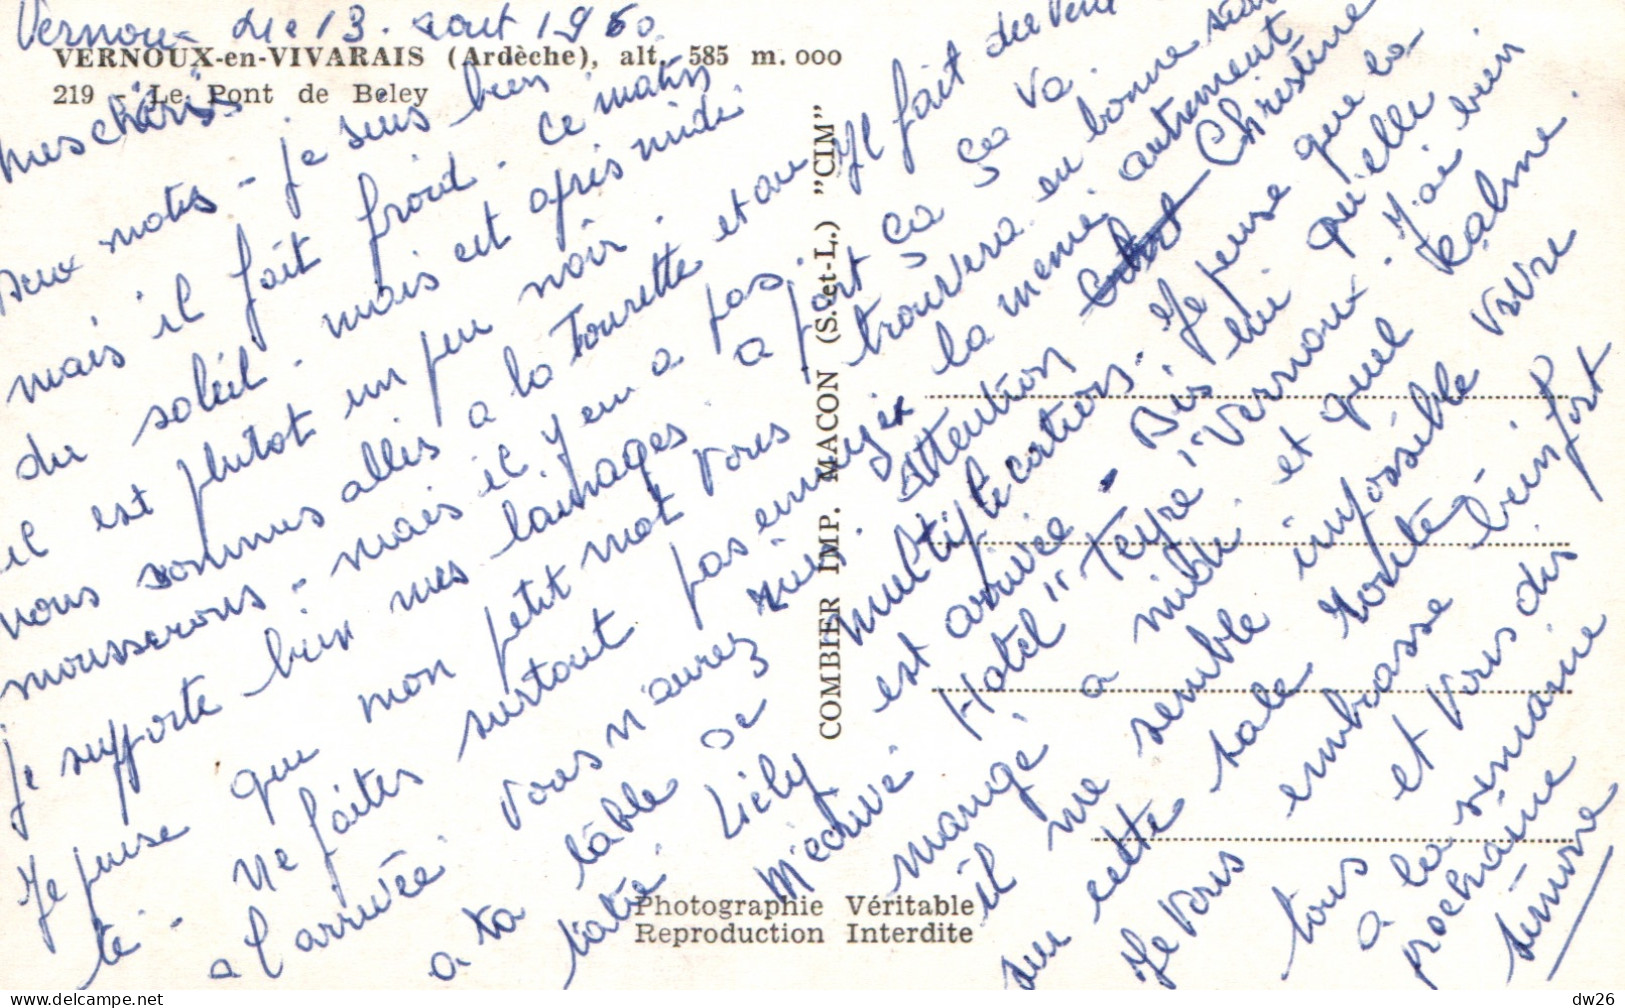 Vernoux le 13 aout 1960
VERNOUX-en-VIVARAIS (Ardèche), alt. 585 m. ooo
219 - Le Pont de Beley
mes chéris
Deux mots - je suis bien
mais il fait froid. ce matin
du soleil. mais cet après midi
il est plutot un peu noir.
nous sommes allés a la Tourette et au
mousserons - mais il y en a pas. Il fait du vent
je supporte bien mes lainages a part ça ça va.
Je pense que mon petit mot vous trouvera en bonne
té - Ne faites surtout pas ennuyer la memé autrement
a l'arrivée vous n'aurez rien. Attention Christine
a ta table de multiplications. Je pense que la
Lily est arrivée - Dis lui qu'elle
m'écrive Hotel "Teyre" Vernoux. J'ai bien
mangé a midi. et quel kalme.
il me semble impossible vivre
sur cette sale Route
Je vous embrasse bien fort
tous et vous dis
a la semaine
prochaine
Simone
COMBIER IMP. MACON (S.-et-L.) "CIM"
Photographie Véritable
Reproduction Interdite
dw26